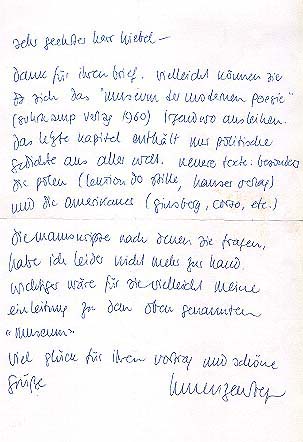 sehr geehrter herr kiebel –
dank für ihren brief. vielleicht können sie
sich das "museum der modernen poesie"
(suhrkamp verlag 1960) irgendwo ausleihen.
das letzte kapitel enthält nur politische
gedichte aus aller welt. neuere texte: besonders
die polen (lektion der stille, hanser verlag)
und die amerikaner (ginsberg, corso, etc.)
die manuskripte nach denen sie fragen,
habe ich leider nicht mehr zur hand.
wichtiger wäre für sie vielleicht meine
einleitung zu dem oben genannten
"museum"
viel glück für ihren vortrag und schöne
grüße